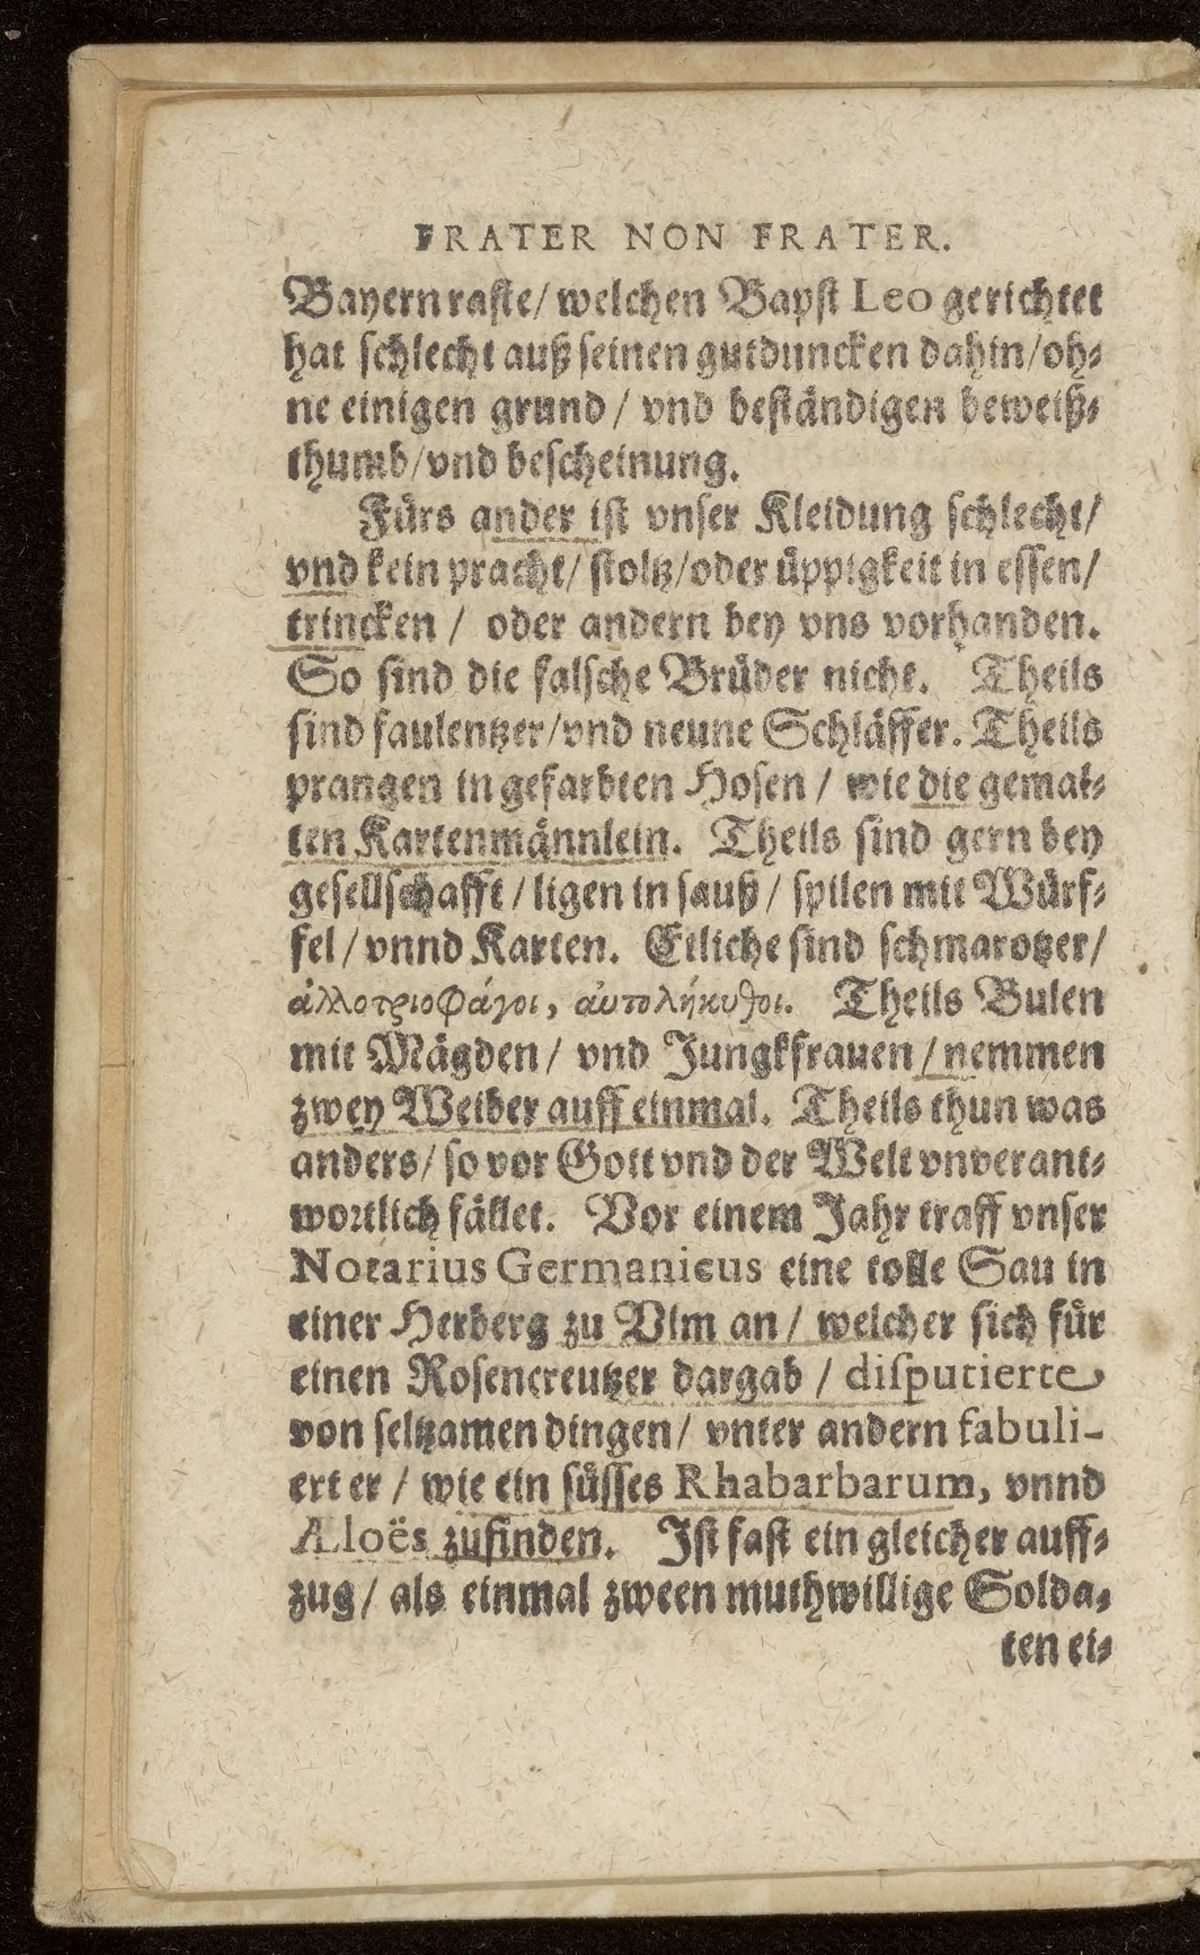 FRATER NON FRATER.
Bayern raſte/ welchen Bapſt Leo gerichtet
hat ſchlecht auß ſeinen gutduncken dahin/ oh⸗
ne einigen grund/ vnd beſtändigen beweiß⸗
thumb/ vnd beſcheinung.
Fürs ander iſt vnſer Kleidung ſchlecht/
vnd kein pracht/ ſtoltz/ oder üppigkeit in eſſen/
trincken / oder andern bey vns vorhanden.
So ſind die falſche Brüder nicht. Theils
ſind faulentzer/ vnd neune Schläffer. Theils
prangen in gefarbten Hoſen / wie die gemal⸗
ten Kartenmännlein. Theils ſind gern bey
geſellſchafft / ligen in ſauß / ſpilen mit Würf⸗
fel / vnnd Karten. Etliche ſind ſchmarotzer/
ἀλλοτριοφάγοι, ἀυτολήκυθοι. Theils Bulen
mit Mägden / vnd Jungkfrauen / nemmen
zwey Weiber auff einmal. Theils thun was
anders/ ſo vor Gott vnd der Welt vnverant⸗
woꝛtlich fället. Vor einem Jahr traff vnſer
Notarius Germanicus eine tolle Sau in
einer Herberg zu Vlm an / welcher ſich für
einen Roſencreutzer dargab / diſputierte
von ſeltzamen dingen/ vnter andern fabuli-
ert er / wie ein ſüſſes Rhabarbarum, vnnd
Aloës zufinden. Iſt faſt ein gleicher auff⸗
zug/ als einmal zween muthwillige Solda⸗
ten ei⸗